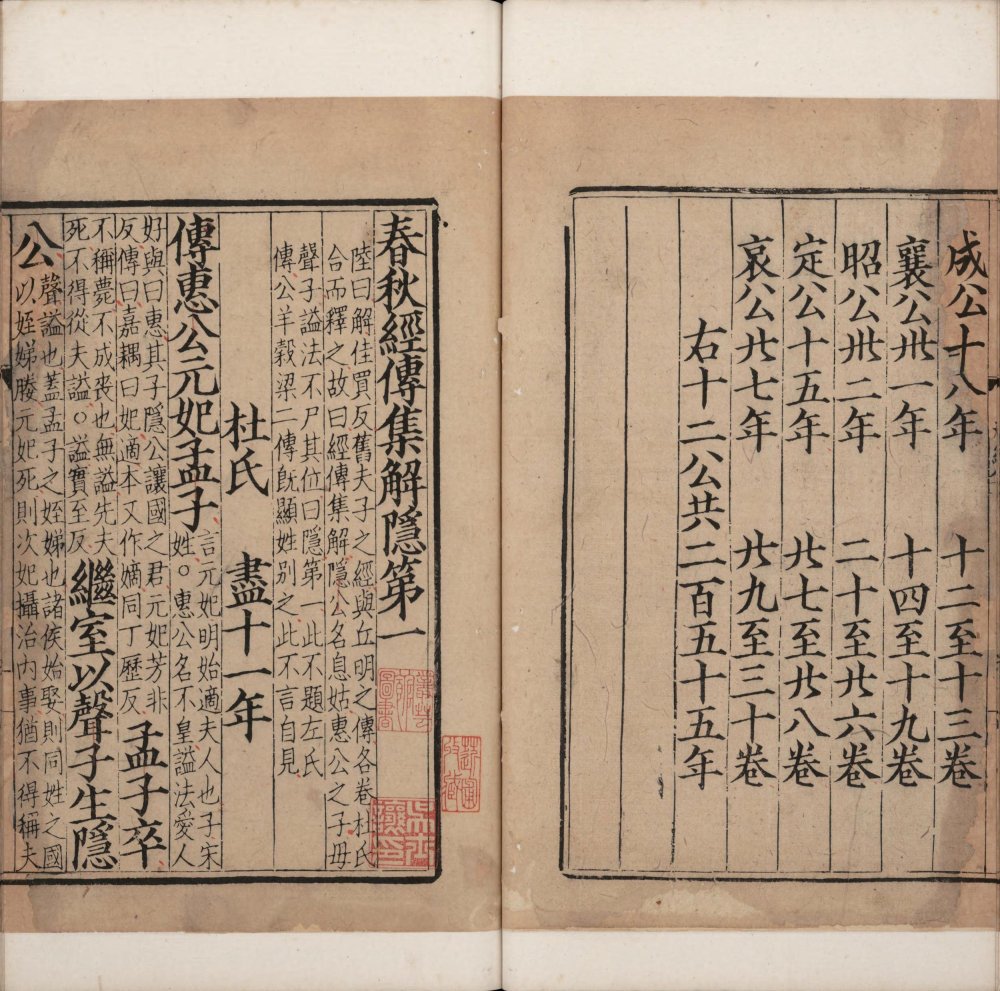 成公十八年　十二至十三卷
襄公卅一年　十四至十九卷
昭公卅二年　二十至廿六卷
定公十五年　廿七至廿八卷
哀公廿七年　廿九至三十卷
右十二公共二百五十五年
春秋經傳集解隱第一
陸曰解佳買反舊夫子之經與丘明之傳各卷杜氏
合而釋之故曰經傳集解隱公名息姑惠公之子母
聲子謚法不尸其位曰隱第一此不題左氏
傳公羊穀梁二傳旣顯姓別之此不言自見
杜氏　盡十一年
傳惠公元妃孟子
言元妃明始適夫人也子宋
姓○惠公名不皇謚法愛人
好與曰惠其子隱公讓國之君元妃芳非
反傳曰嘉耦曰妃適本又作嫡同丁歷反
孟子卒
不稱薨不成喪也無謚先夫
死不得從夫謚○謚實至反
繼室以聲子生隱
公
聲謚也蓋孟子之姪娣也諸侯始娶則同姓之國
以姪娣媵元妃死則次妃攝治內事猶不得稱夫